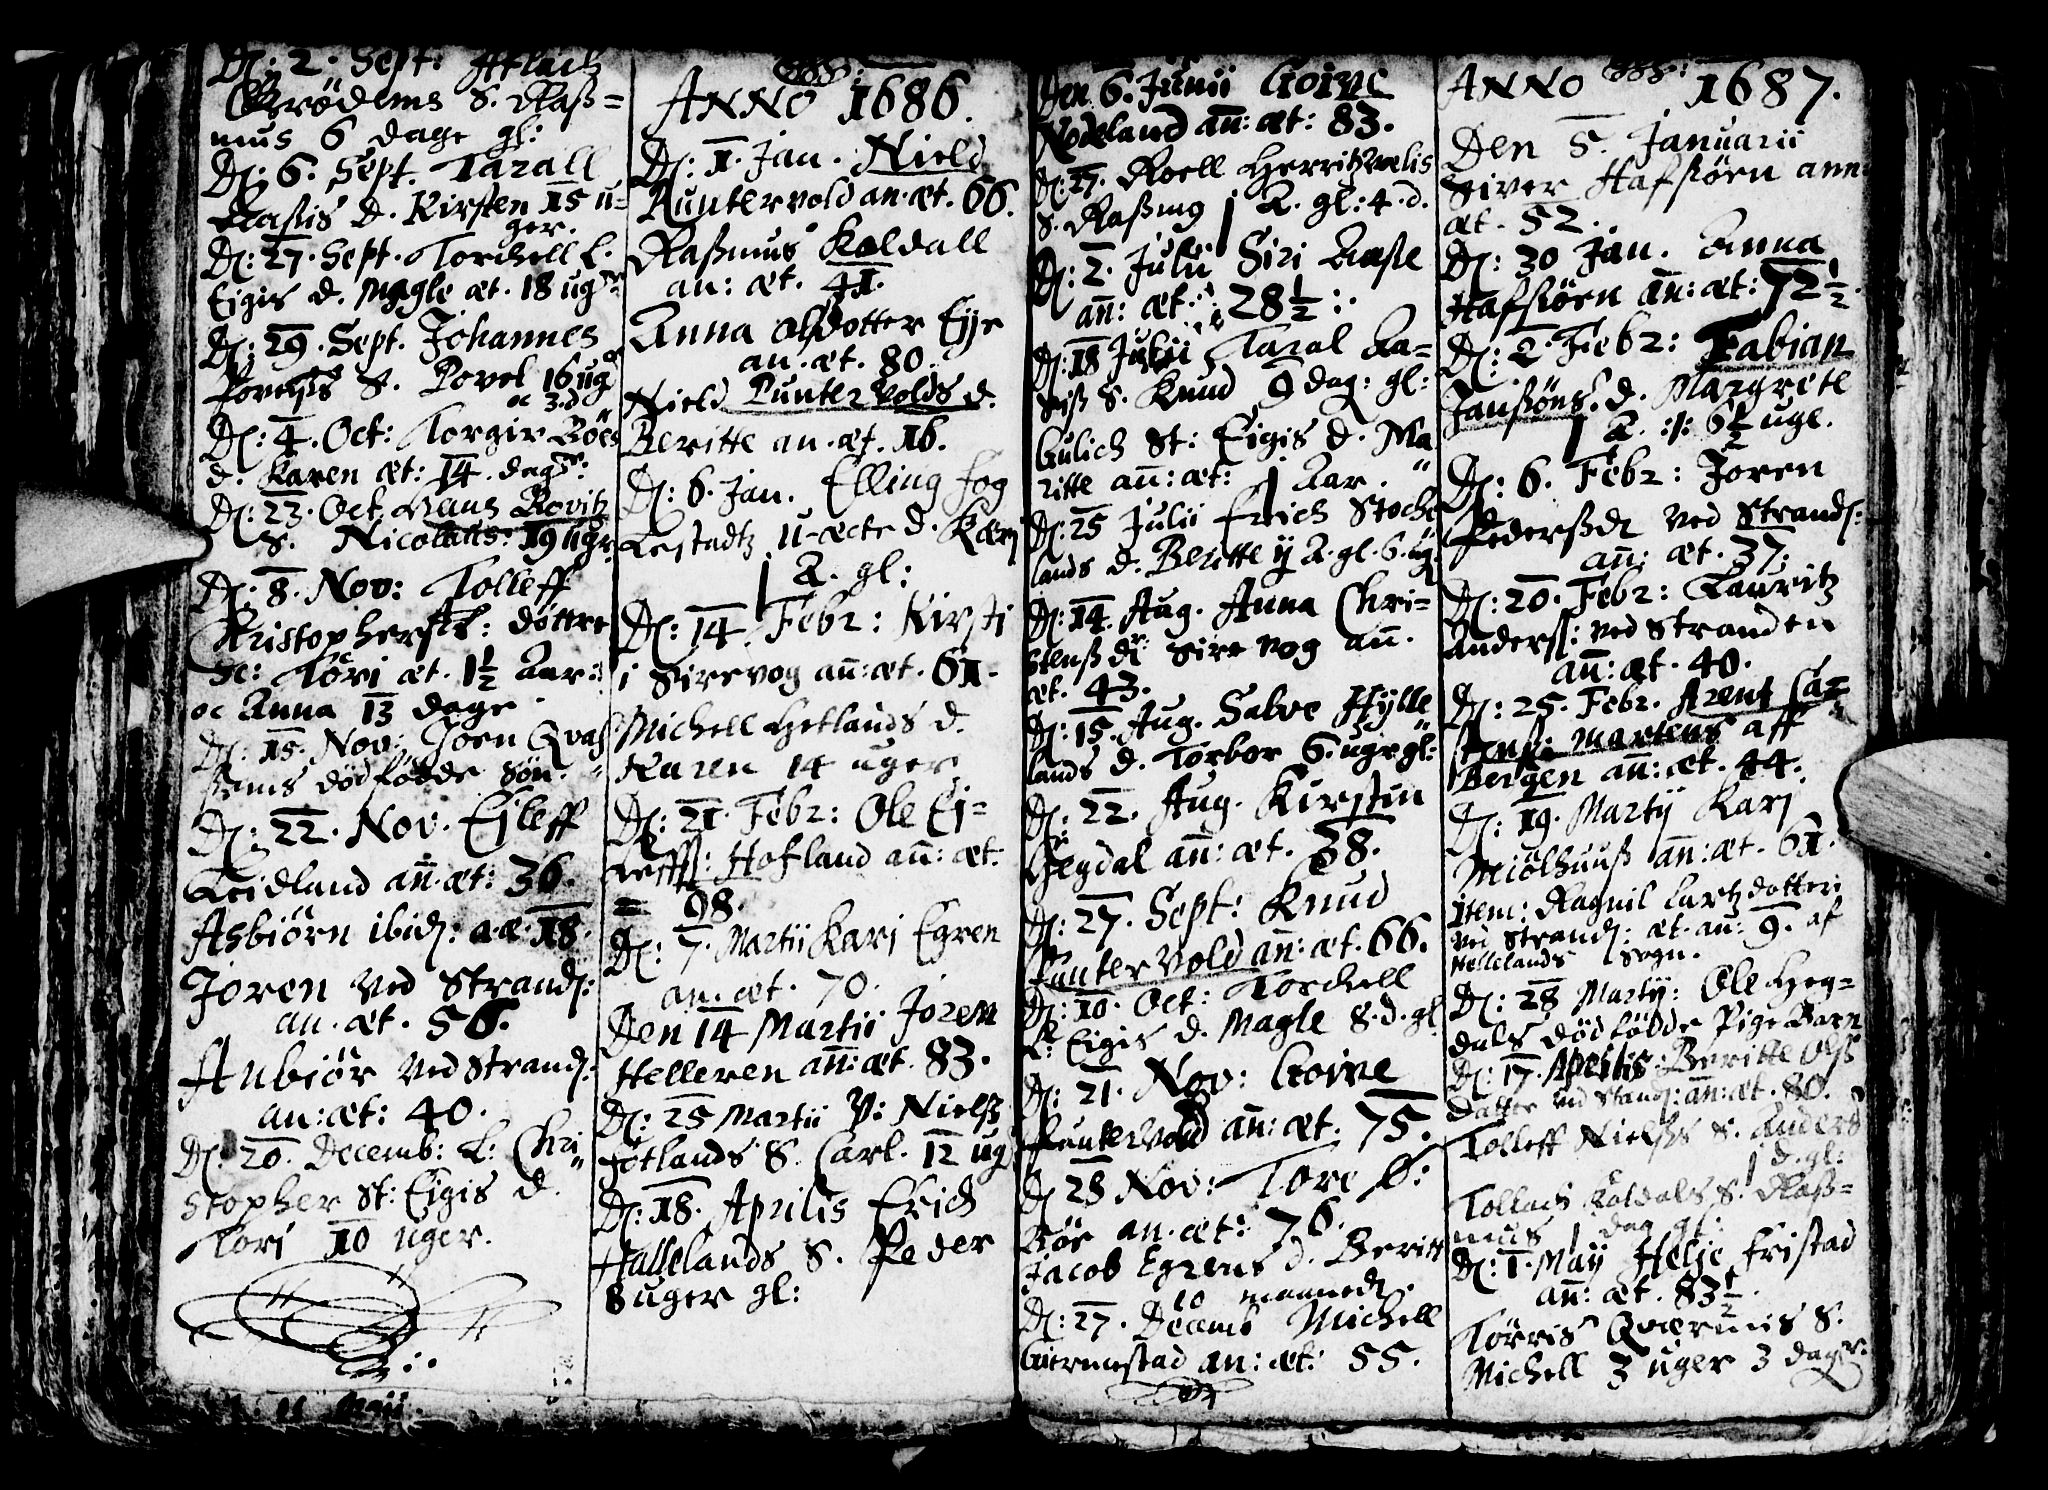 D: 2. Sept: Asslach
Grödems S. Rasz=
mus 6 dage gl:
D: 6. Sept. Tarall
Aasis d. Kirsten 15 u=
ger.
D: 27. Sept. Torchell L.
Eigis d. Magle æt. 18 ugr
D: 29. Sept. Johannes
S. Povel 16 ugr
oc 3. d
D: 4. Oct: Torgir Böes
d. Karen æt: 14. dagr:
D: 23. Oct. Hans Rovitz
S. Nicolaus: 19 ugr.
D: 8. Nov: Tolleff
Kristophers: döttre
Sc: Töri æt. 1½ Aar:
oc Anna 13 dage.
D: 15. Nov: Joen Qvas
sems dödfödde Sön.
D: 22. Nov. Ejleff
Leidland añ. æt: 36.
Asbiörn ibid: a.æ. 18.
Joren ved Strand:
an. æt. 56.
Anbiör ved Strand:
an: æt: 40.
D: 20. Decemb: L: Chri
stopher St: Eigis d.
Tori 10 uger.
11 Maii.
ANNO 1686.
D: 1. Jan. Nield
Puntervold an. æt. 66.
Raszmus Koldall
an: æt. 41.
Anna Olsdotter Eye
an. æt. 80.
Nield Puntervolds d.
Beritte an. æt. 16.
D: 6. Jan. Elling Fog
Lestadtz u-ecte d. Karj
1 A. gl:
D: 14 Febr: Kirsti
i Sirevog añ: æt. 61.
Michell Hetlands d.
Karen 14 uger.
D: 21. Febr: Ole Ej=
Leffs: Hofland añ: æt.
= 68.
D: 7. Martii Karj Egren
an. æt. 70.
Den 14 Martii Joren
Helleren añ: æt. 83.
D: 25 Martii P: Nielsz
Jötlands S. Carl. 12 ug
D: 18. Aprilis Erich
Hallelands S. Peder
8 uger gl:
Den 6. Junii Goive
Nodeland añ: æt: 83.
D: 27. Roell Herritzvælis
S. Raszmus 1 A. gl: 4. d.
D: 2. Julii Siri Aase
añ: æt. 28½:
D: 18 Julii Taral Aa=
sisz S. Knud 9 dag: gl:
Gulich St: Eigis d. Ma
ritte añ: æt: 1 Aar.
D: 25 Julii Erich Stoche
lands d. Beritte ij A. gl. 6. ug
D: 14. Aug. Anna Chri=
stensz dr Sirevog añ.
æt. 43.
D: 15. Aug. Salve Hylle
lands d. Torbor 6. ugr gl:
D: 22. Aug. Kirstin
Hegdal añ: æt. 38.
D: 27. Sept: Knud
Puntervold añ: æt. 66.
D: 10. Oct: Torchell
L: Eigis d. Magle 8. d. gl
D: 21. Nov: Goive
Puntervold añ: æt. 75.
D 28 Nov: Tore
Böe an. æt: 76.
Jacob Egrens d. Beritt
10 maaned.
D: 27. Decemb Michell
Giermestad an: æt: 55.
ANNO 1687.
Den 5. Januarii
Siver Hafsörn ann:
æt. 52.
D: 30 Jan. Anna
Hafsörn añ: æt: 72½.
D: 2. Febr: Fabian
Janszöns d. Margrete
1 A. 6½ uge.
D: 6. Febr: Joren
Pedersd ved Strand:
añ: æt. 37:
D: 20. Febr: Lauritz
Anders: ved Stranden
añ: æt. 40.
D: 25. Febr. Arent Car
stens: Martens aff
Bergen añ: æt. 44.
D: 19. Martij Karj
Miölhuusz añ: æt. 61.
Item: Ragnil Lartzdotter
ved Strand: æt. an: 9. af
Hellelands Sogn.
D: 28 Martij: Ole Heg=
dals dödfödde Pige Barn
D: 17. Aprilis: Beritte Ols
datter ved Stand: añ: æt. 80.
Tolleff Nielszs S. Anders
1 d. gl:
Tollach Koldals S. Rasz=
mus 1 dag gl:
D: 1. Maij Helje Fristad
añ: æt. 83½.
Törris Qværmis S.
Michell 3 uger 3 dagr.